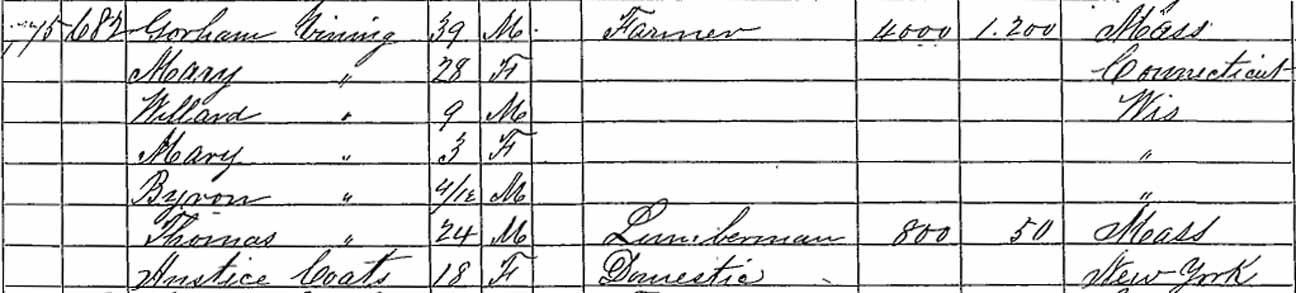 682 Gorham Vining 39 M. Farmer 4000 1.200 Mass
Mary " 28 F Connecticut
Willard " 9 M Wis
Mary " 3 F "
Byron " 4/12 M "
Thomas " 24 M Lumberman 800 50 Mass
Anstice Coats 18 F Domestic New York